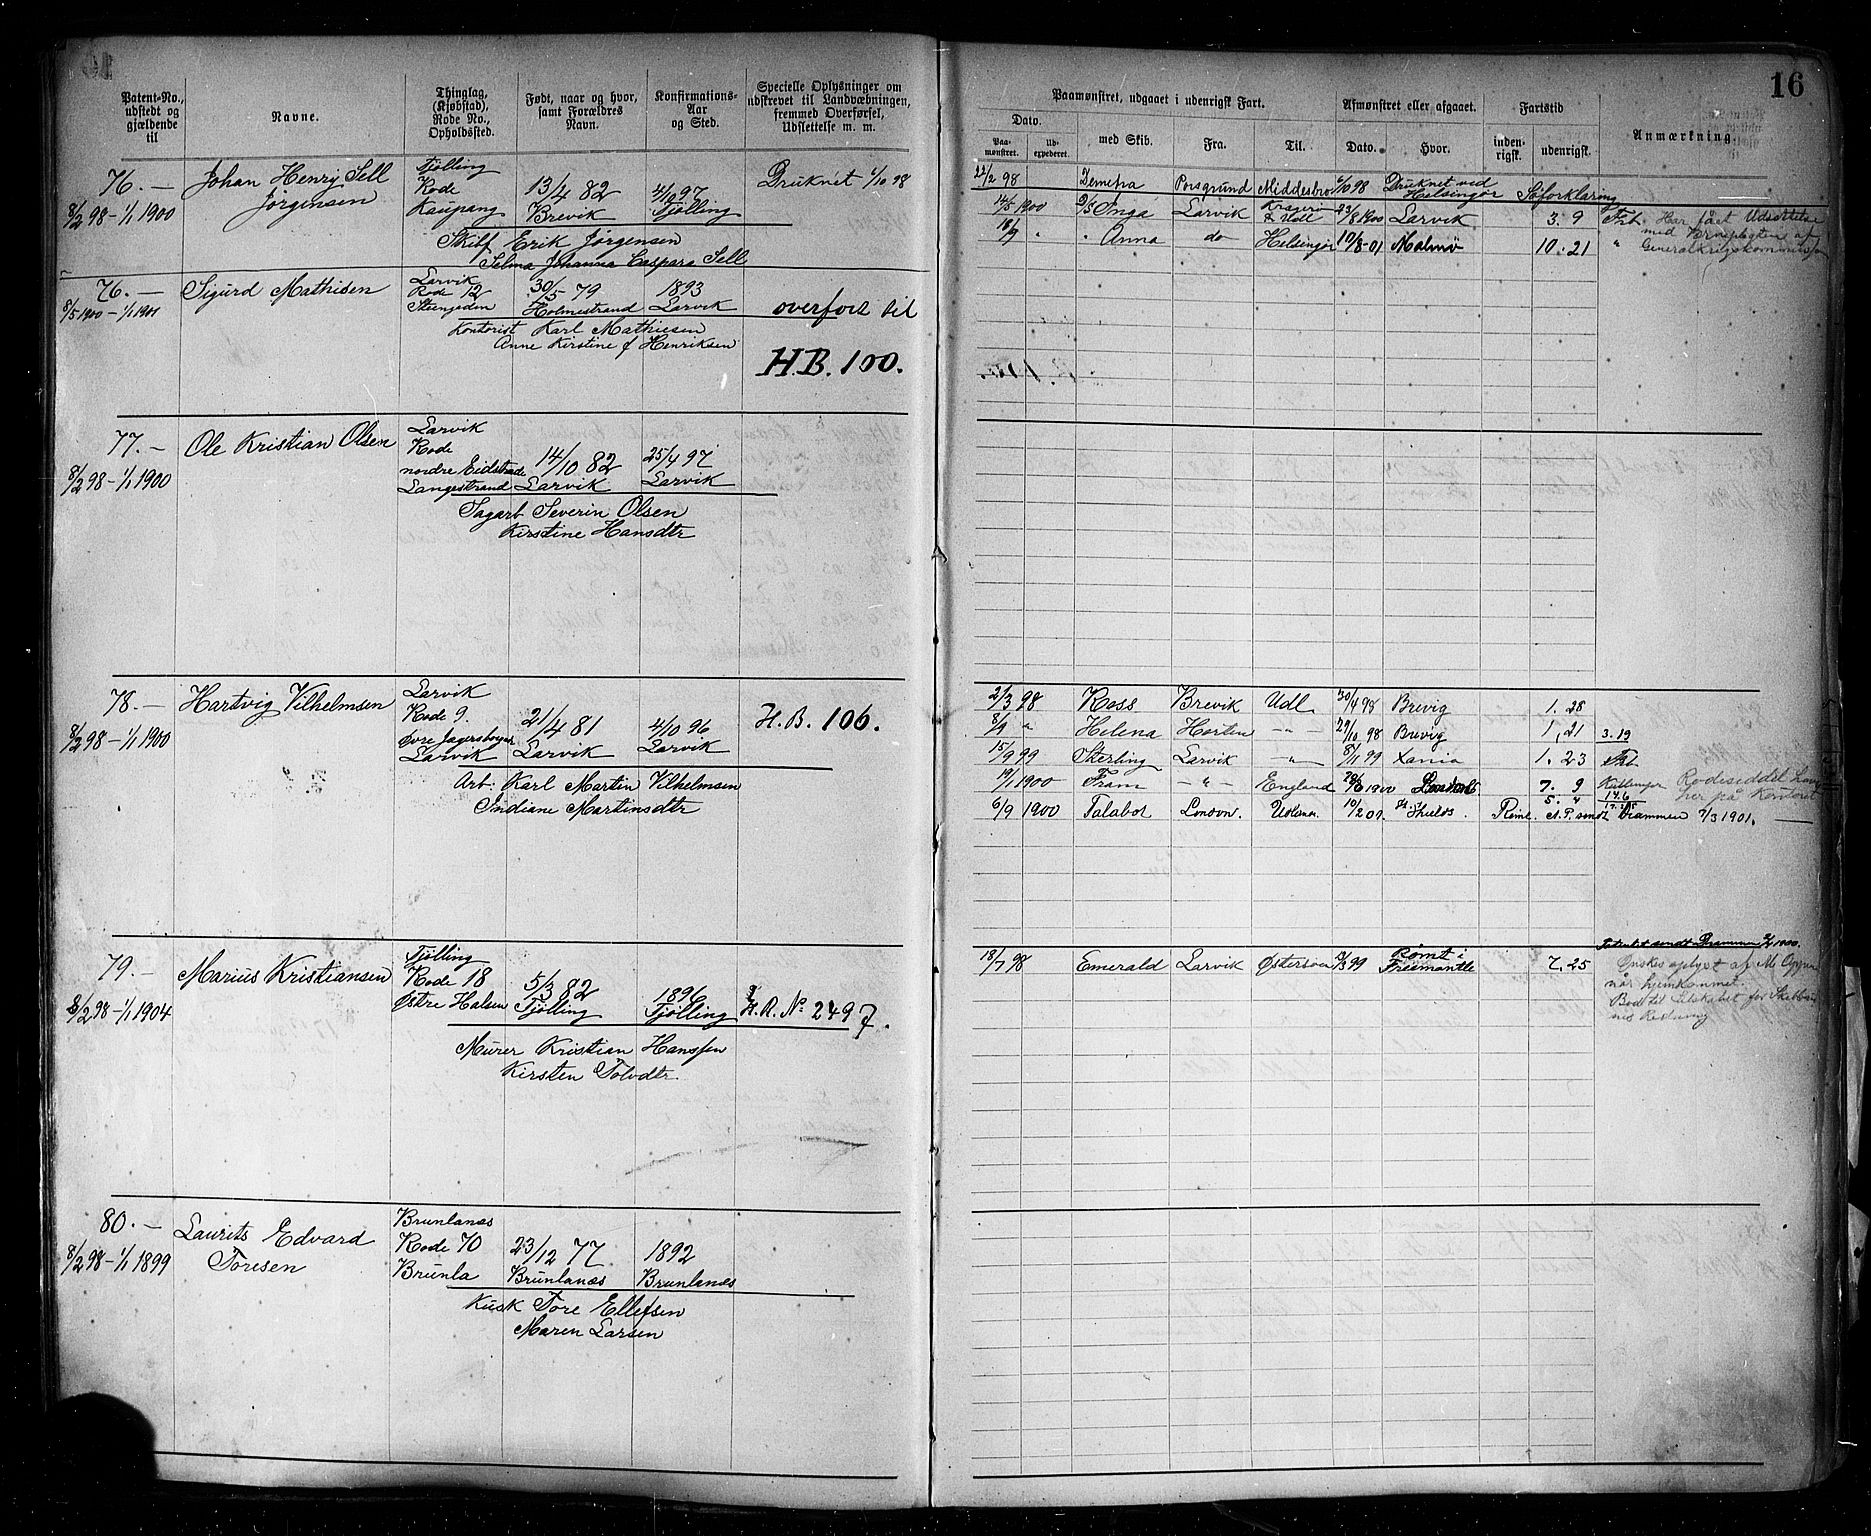 16
Patent-No., udstedt og gjældende til
Navne.
Thinglag, (Kjøbstad), Rode No., Opholdssted.
Født, naar og hvor, samt Forældres Navn.
Konfirmations-Aar og Sted.
Specielle Oplysninger om udskrevet til Landværnigen, fremmed Overførsel, Udslettelse m. m.
Paamønstret, udgaaet i udenrigsk Fart.
Afmønstret eller afgaaet.
Fartstid
Anmærkning.
Dato.
Paamønstret.
Udexpederet.
med Skib.
Fra.
Til.
Dato.
Hvor.
indenrigsk.
udenrigsk.
76. — Johan Henry Sell Tjølling
Jørgensen Rode 13/4 82 4/10 97 Druknet 1/10 98
8/2 98 – 1/1 1900 Kaupang Brevik Tjølling
Skibf Erik Jørgensen
Selma Johanna Caspara Sell
22/2 98 Demetra Porsgrund Middesbro 1/10 98 Druknet ved Helsingør Søforklaring
14/5 1900 Inga Larvik Kragerø & Udl 23/8 1900 Larvik 3. 9
Har fået Udsættelse
med Værnepligten af
Generalkrigskommissær
18/9 " " Anna do Helsingør 19/8-01 Malmø 10. 21 "
76. — Sigurd Mathisen Larvik 30/5 79 1893
Rode 12
8/5 1900 – 1/1 1901 Steengaden Holmestrand Larvik overført til
Kontorist Karl Mathiesen
Anne Kirstine f Henriksen
H.B. 100.
77. — Ole Kristian Olsen Larvik
Rode
8/2 98 – 1/1 1900 nordre Eidstrade 14/10 82 25/4 97
Langestrand Larvik Larvik
Sagarb Severin Olsen
Kirstine Hansdtr
78. — Hartvig Vilhelmsen Larvik
Rode 9. 21/4 81 4/10 96 H.B. 106.
8/2 98 – 1/1 1900 Øvre Jagersborggt
Larvik Larvik Larvik
Arb: Karl Martin Vilhelmsen
Indiane Martinsdtr
2/3 98 Ross Brevik Udl 30/4 98 Brevig 1. 28
8/9 " Helena Horten — " — 29/10 98 Brevig 1, 21 3.19
15/9 99 Sterling Larvik — " — 8/11 99 Xania 1. 23
19/1 1900 Fram — " — England 28/6 1900 London 7. 9 Rodeseddel
her på Kontoret
5. 4 14.6
6/9 1900 Talabot London. Udenr. 10/2 01. Shields. Rømt. A.P. sendt Drammen 7/3 1901. —
79. — Marius Kristiansen Tjølling
Rode 18 5/3 82 1896
8/2 98 – 1/1 1904 Østre Halsen Tjølling Tjølling H.R. No 2497.
Murer Kristian Hanssen
Kirsten Tolvdtr.
Patentet sendt Drammen 1900.
18/7 98 Emerald Larvik Østersøen 99 Rømt i Freemantle 7. 25
Ønskes oplyst af M.
når hjemkommet.
80. — Laurits Edvard Brunlanæs
Toresen Rode 70 23/12 77 1892
8/2 98 – 1/1 1899 Brunla Brunlanæs Brunlanæs
Kusk Tore Ellefsen
Maren Larsen